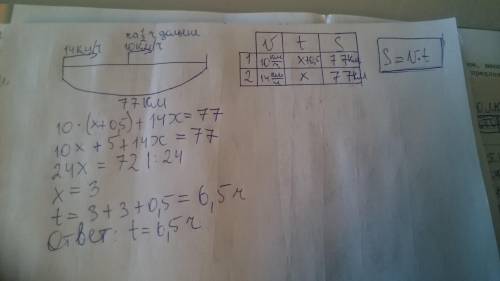 на 1/2 ч дальше
14км/ч 10км/ч
77км
v t S
1 10 км/ч x+0,5 77км
2 14 км/ч x 77км
S=v·t
10·(x+0,5)+14x=77
10x+5+14x=77
24x = 72 |:24
x = 3
t = 3+3+0,5 = 6,5ч
Ответ: t=6,5ч